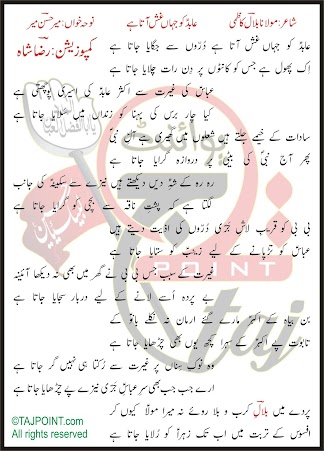 شاعر: مولانا بلال کاظمی عابدؑ کو جہاں غش آتا ہے نوحہ خواں: میر حسن میر
کمپوزیشن: رضا شاہ
عابدؑ کو جہاں غش آتا ہے دُرّوں سے جگایا جاتا ہے
اِک پھول ہے جس کو کانٹوں پر دِن رات چلایا جاتا ہے
عباسؑ کی غیرت سے اکثر اکبرؑ کی امیری پوچھتی ہے
کیا چار برس کی بہنا کو زنداں میں سُلایا جاتا ہے
سادات کے خیمے جلتے ہیں شعلوں میں گھری ہے آلِ نبیؐ
پھر آج نبیؐ کی بیٹی پر دروازہ گرایا جاتا ہے
رہ رہ کے شہِؑ دیں دیکھتے ہیں نیزے سے سکینہؑ کی جانب
لگتا ہے کہ پشتِ ناقہ سے بچی کو گرایا جاتا ہے
بی بی کو قریبِ لاشِ جَری دُرّوں کی اذیت دیتے ہیں
عباسؑ کو تڑپانے کے لیے زینبؑ کو ستایا جاتا ہے
غیرت کے سبب جس بی بی نے گھر میں بھی نہ دیکھا آئینہ
بے پردہ اُسے لانے کے لیے دربار سجایا جاتا ہے
بن بیاہ کے اکبرؑ مارے گئے ارمان نہ نکلے بانو کے
تابوت پے اکبرؑ کے سہرا پھر کیوں بھی سجایا جاتا ہے
وہ نوکِ سناں پر غیرت سے رُکتا ہی نہیں گر جاتا ہے
ارے جب جب بھی سرِ عباسؑ جری نیزے پے چڑھایا جاتا ہے
پردے میں بلالؔ کرب و بلا روئے نہ میرا مولا کیوں کر
افسوس کے تربت میں اب تک زہراؑ کو رُلایا جاتا ہے
POINT
taj
©TAJPOINT.com
All rights reserved